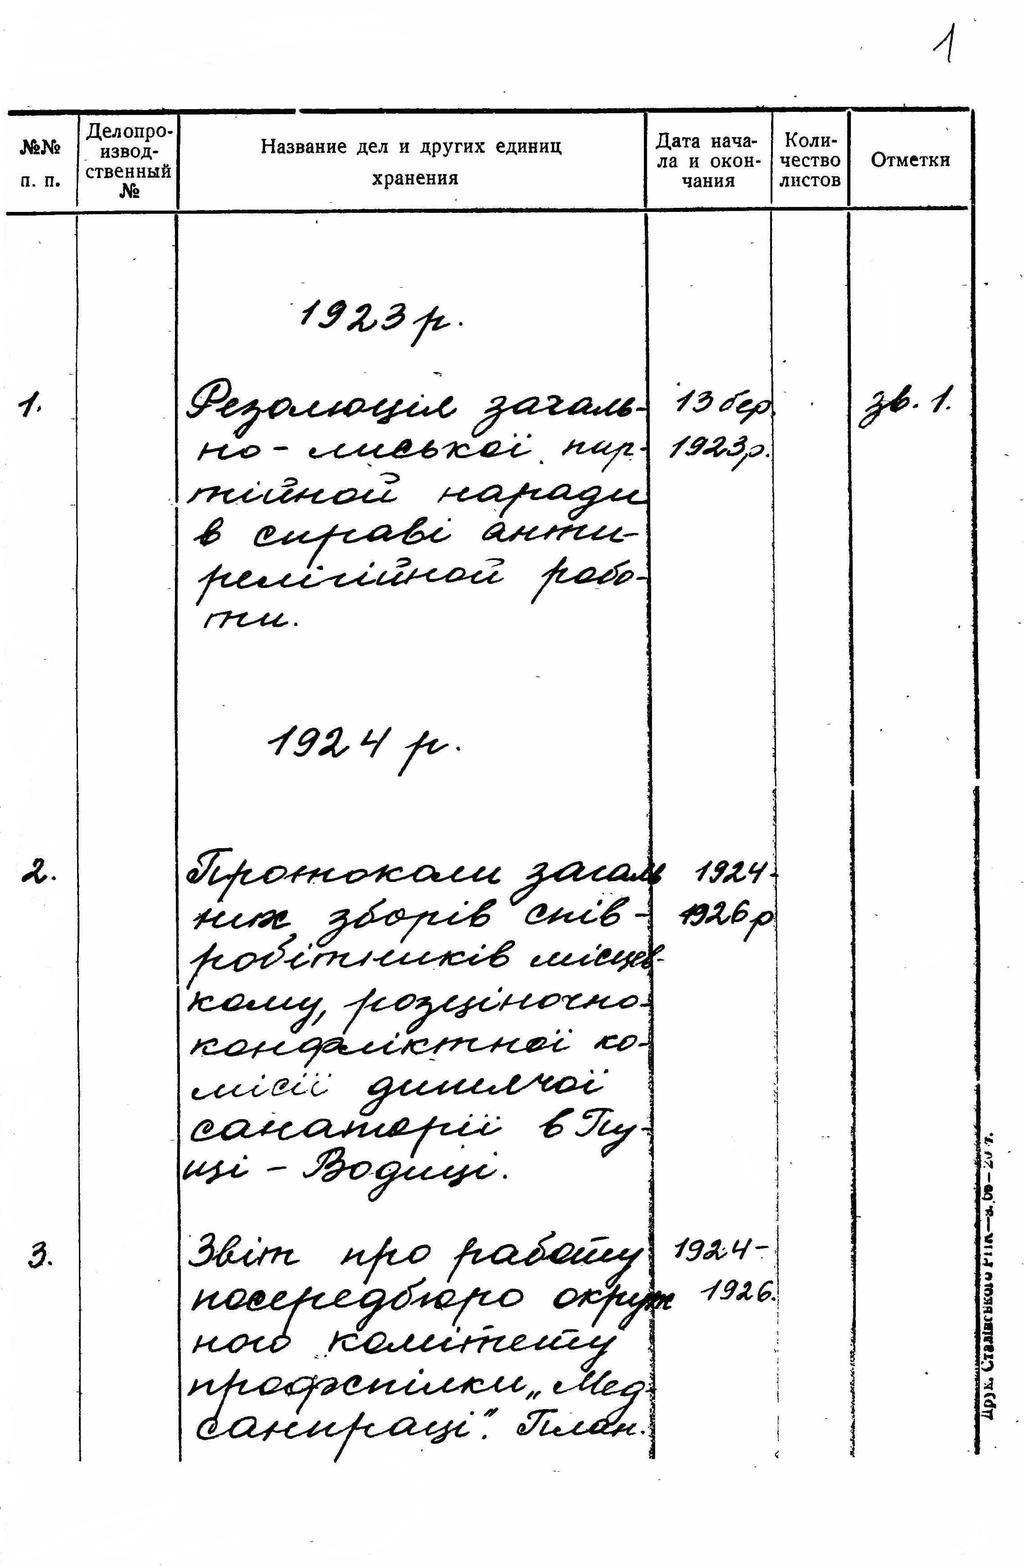 1
№№ п. п.
Делопро-
извод-
ственный
№
Название дел и других единиц
хранения
Дата нача-
ла и окон-
чания
Коли-
чество
листов
Отметки
1923 р.
1. Резолюція загаль- 13 бер. зв. 1.
но-миської пар- 1923р.
тійной наради
в справі анти-
релігійной робо-
ти.
1924 р.
2. Протоколи загаль 1924-
них зборів спів- 1926р
робітників місцев-
кому, розціночно-
конфліктної ко-
місії дитячої
санаторії в Пу-
щі-Водиці.
3. Звіт про работу 1924-
посередбюро окруж 1926.
ного комітету
профспілки „Мед-
санпраці". План.
Друк. Сталінського РПК—з.